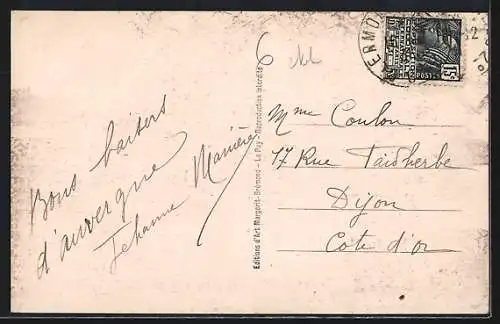 Bons baisers
d'auvergne
Jehanne
6
Editions d'Art Margerit-Brémond - Le Puy - Reproduction interdite
Mme Coulon
17 Rue Faidherbe
Dijon
Cote d'or
ERMO
POSTES
15c